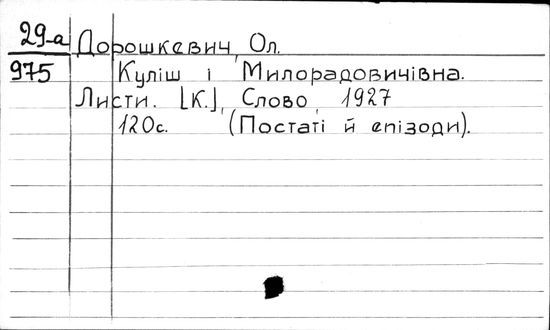 29-а Дорошкевич, Ол.
975 Куліш і Милорадовичівна.
Листи. [К.], Слово, 1927
120с. (Постаті й епізоди).